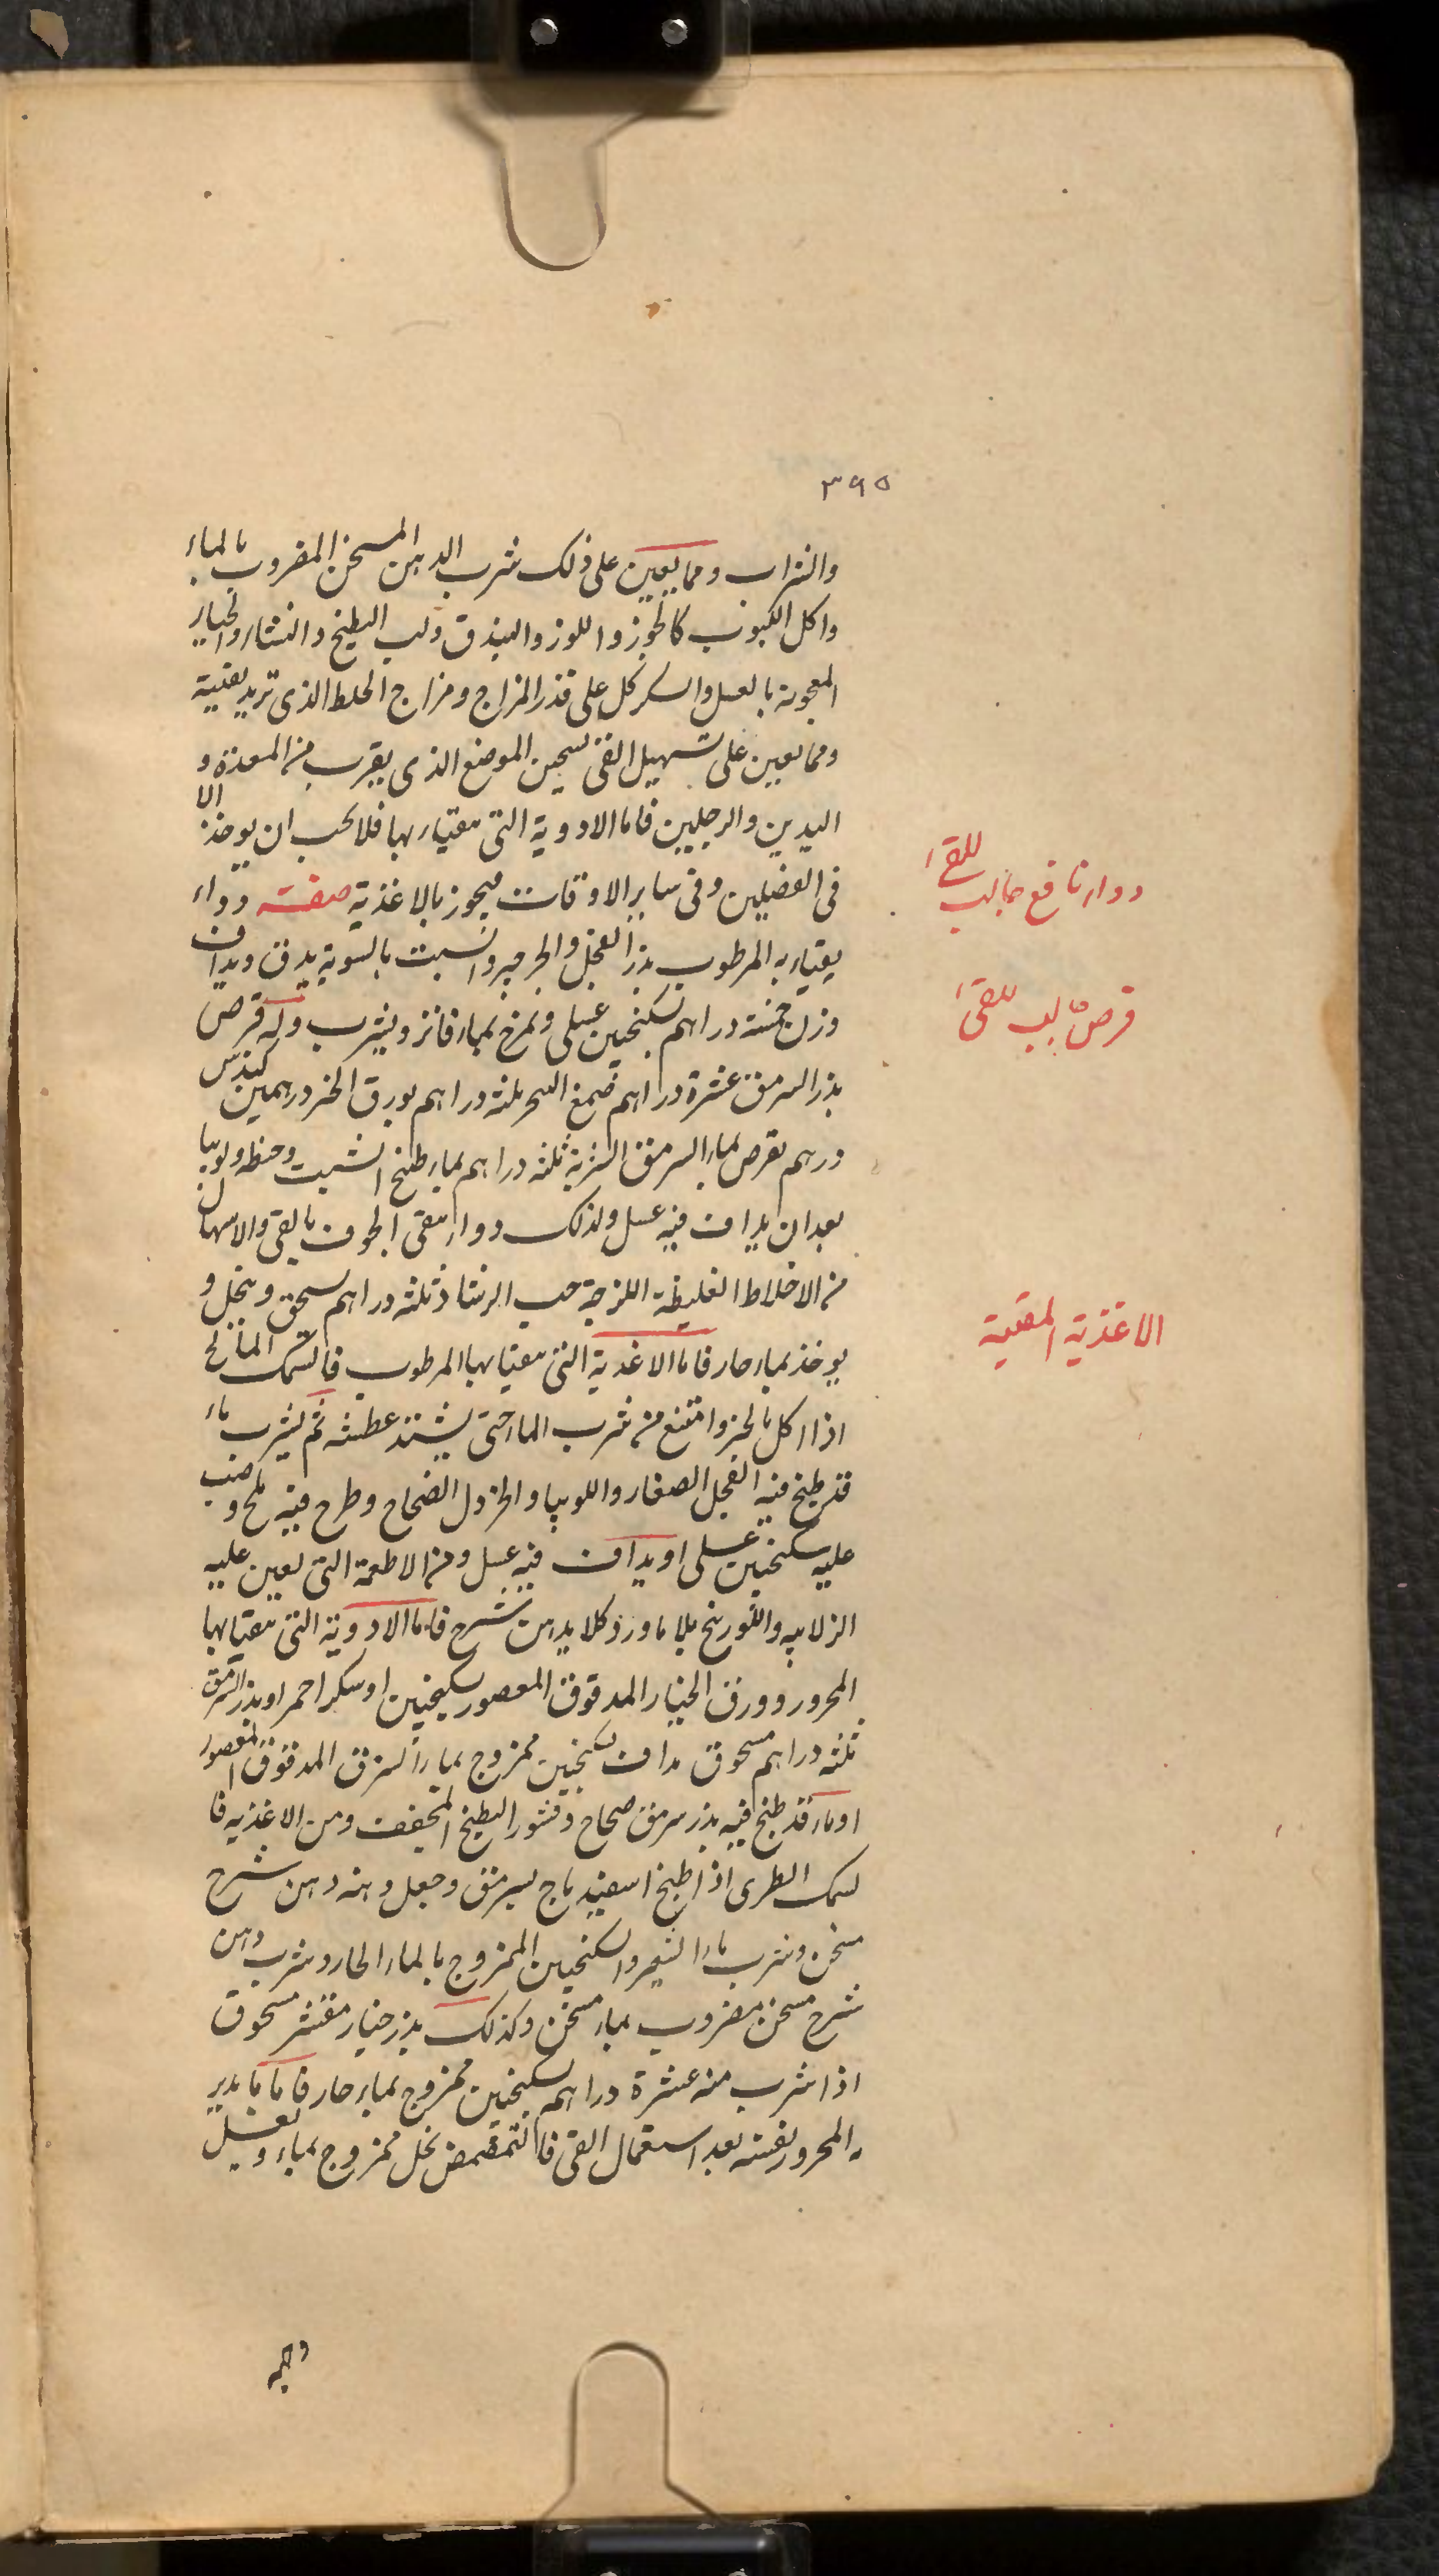 ٣٩٥
والشراب ومما يعين على ذلك شرب الدهن المسخن المضروب بالماء
واكل اللبوب كالجوز واللوز والبندق ولب البطيخ والقثاء والخيار
المعجونة بالعسل والسكر كل على قدر المزاج ومزاج الخلط الذى تريد تقيئه
ومما يعين على تسهيل القئ تسخين الموضع الذى يقرب من المعدة و
اليدين والرجلين فاما الادوية التى يتقيأ بها فلا يجب ان يوخذ الا
فى الفصلين وفى ساير الاوقات فيجوز بالاغذية صفت دواء
يتقياء به المرطوب بذر الفجل والجرجير والشبت بالسوية يدق ويداف
وزن خمسة دراهم بسكنجبين عسلى ويمزج بماء فاتر ويشرب وله قرص
بذر السرمق عشرة دراهم ضمغ السحر ثلثة دراهم بورق الخبز درهمين كندس
درهم يقرص بماء السرمق الشربة ثلثة دراهم بماء طبخ الشبت وحنطه ولوبيا
بعد ان يداف فيه عسل ولذلك دواء ينقى الجوف بالقئ والاسهال
من الاخلاط الغليظة اللزجة حب الرشاد ثلثة دراهم يسحق وينخل و
يوخذ بماء حار فاما الاغدية التى يتقيا بها المرطوب فالسمك المالح
اذا اكل بالخبز وامتنع من شرب الماء حتى يشتد عطشه ثم يشرب ماء
قد طبخ فيه الفجل الصغار واللوبيا والخردل الضحاح وطرح فيه ملح وصب
عليه سكنجبين عسلى او يداف فيه عسل ومن الاطعمة التى تعين عليه
الزلابيه واللوزينج بلا ماورد كلا بدهن شيرج فاما الادوية التى يتقيا بها
المحرور وورق الخيار المدقوق المعصور بسكنجبين او سكر احمر او بذر السرمق
ثلثه دراهم مسحوق مداف بسكنجبين ممزوج بماء السرق المدقوق المعصور
او ماء قد طبخ فيه بذر سرمق صحاح وقشور البطيخ المجفف ومن الاغذيه فا
لسمك الطرى اذا طبخ اسفيدباج بسرمق وجعل دهنه دهن شيرج
مسخن وشرب ماء الشعير والسكنجبين الممزوج بالماء الحار وشرب دهن
شيرج مسخن مضروب بماء مسخن وكذلك بذر خيار مقشر مسحوق
اذا شرب منه عشرة دراهم بسكنجبين ممزوج بماء حار فاما ما يدبر
به المحرور نفسه بعد استعمال القئ فالتمضمض بخل ممزوج بماء ويغسل
دواء نافع جالب للقئ
قرص جالب للقئ
الاغذية المقيية
وجهه